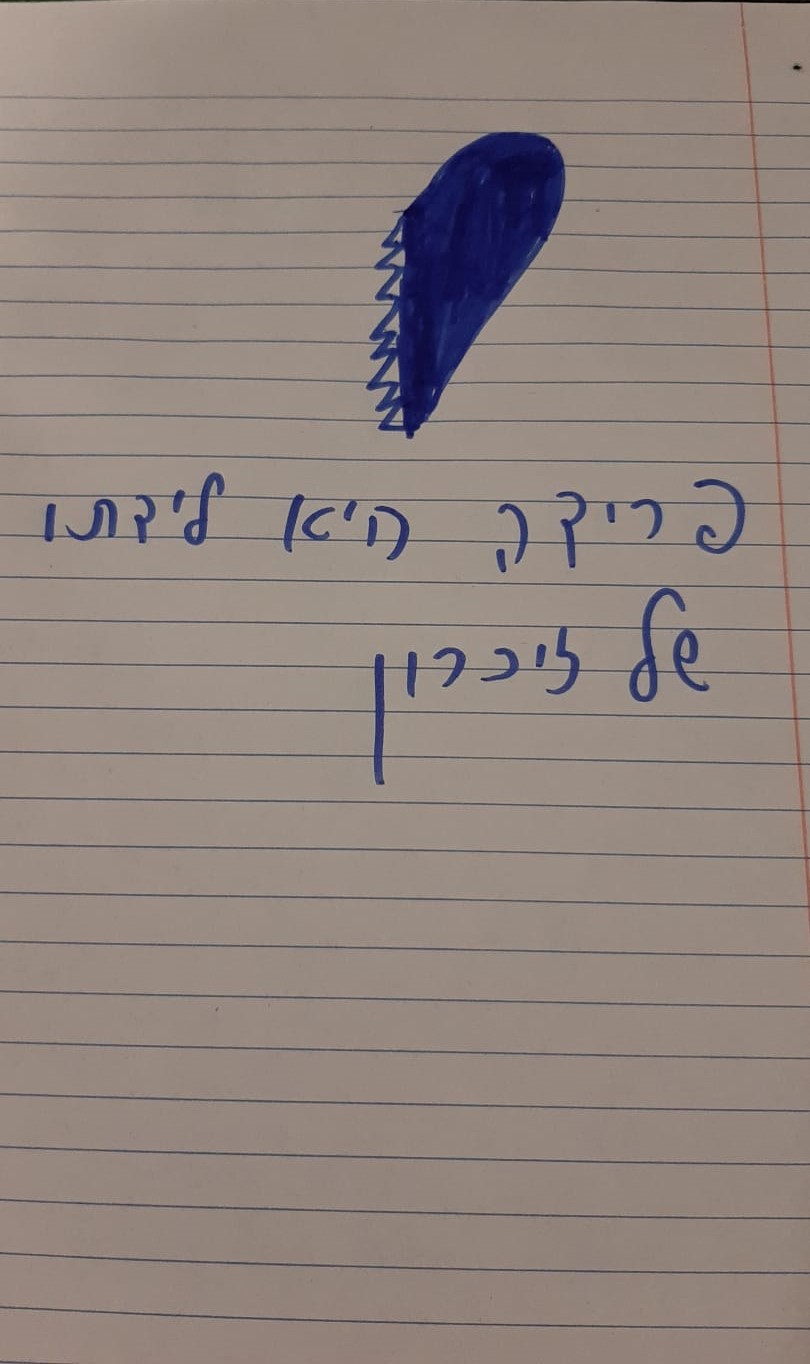 פרידה היא לידתו
של זיכרון